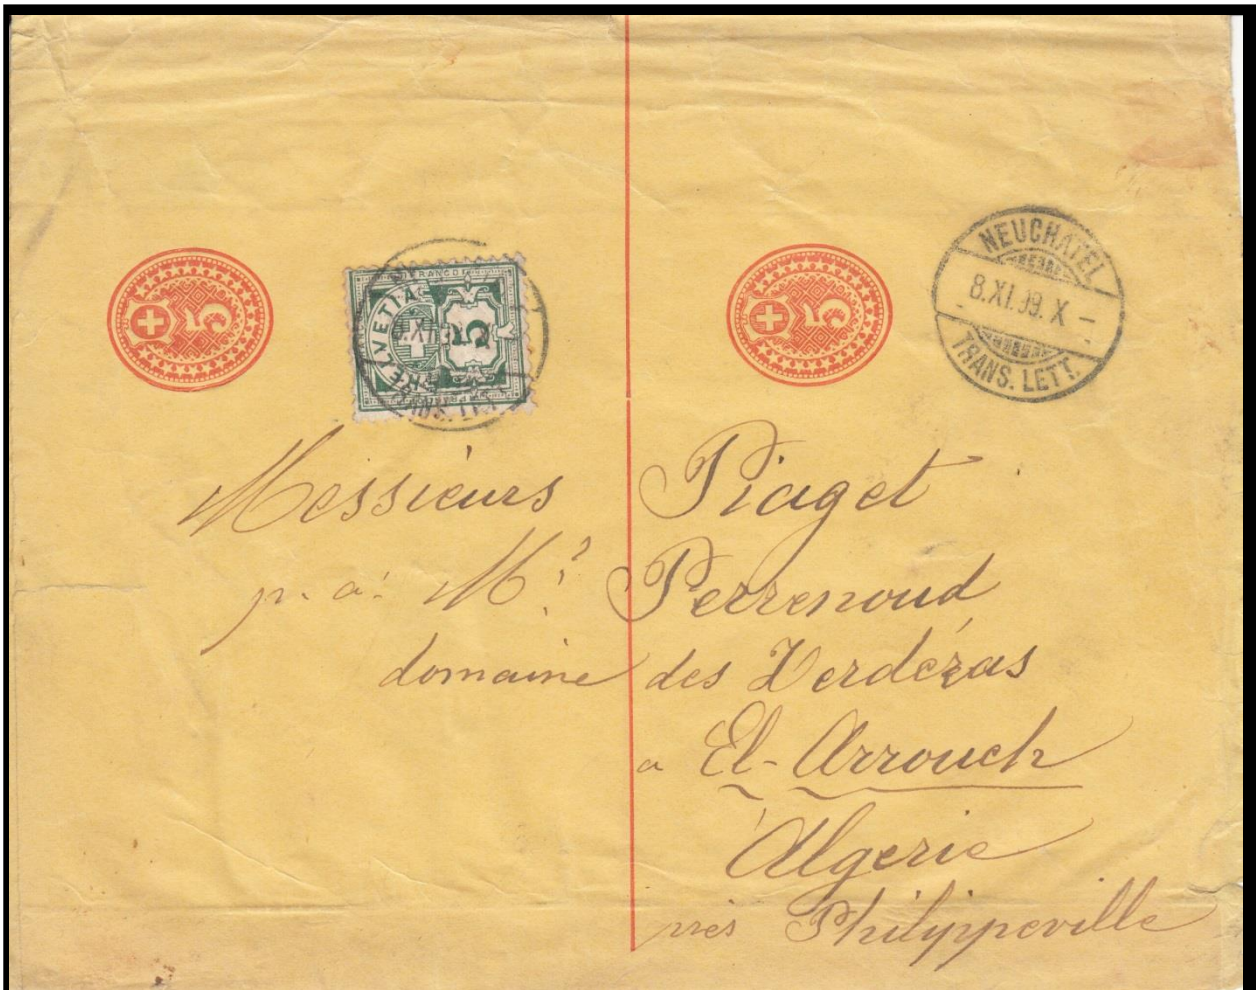 5
FRANCO
HELVETIA
5
5
NEUCHATEL
8.XI.99.X-
TRANS. LETT.
Messieurs Piaget
p. a. Mr. Perrenoud
domaine des Zerdézas
a El-Arrouch
Algerie
près Philippeville